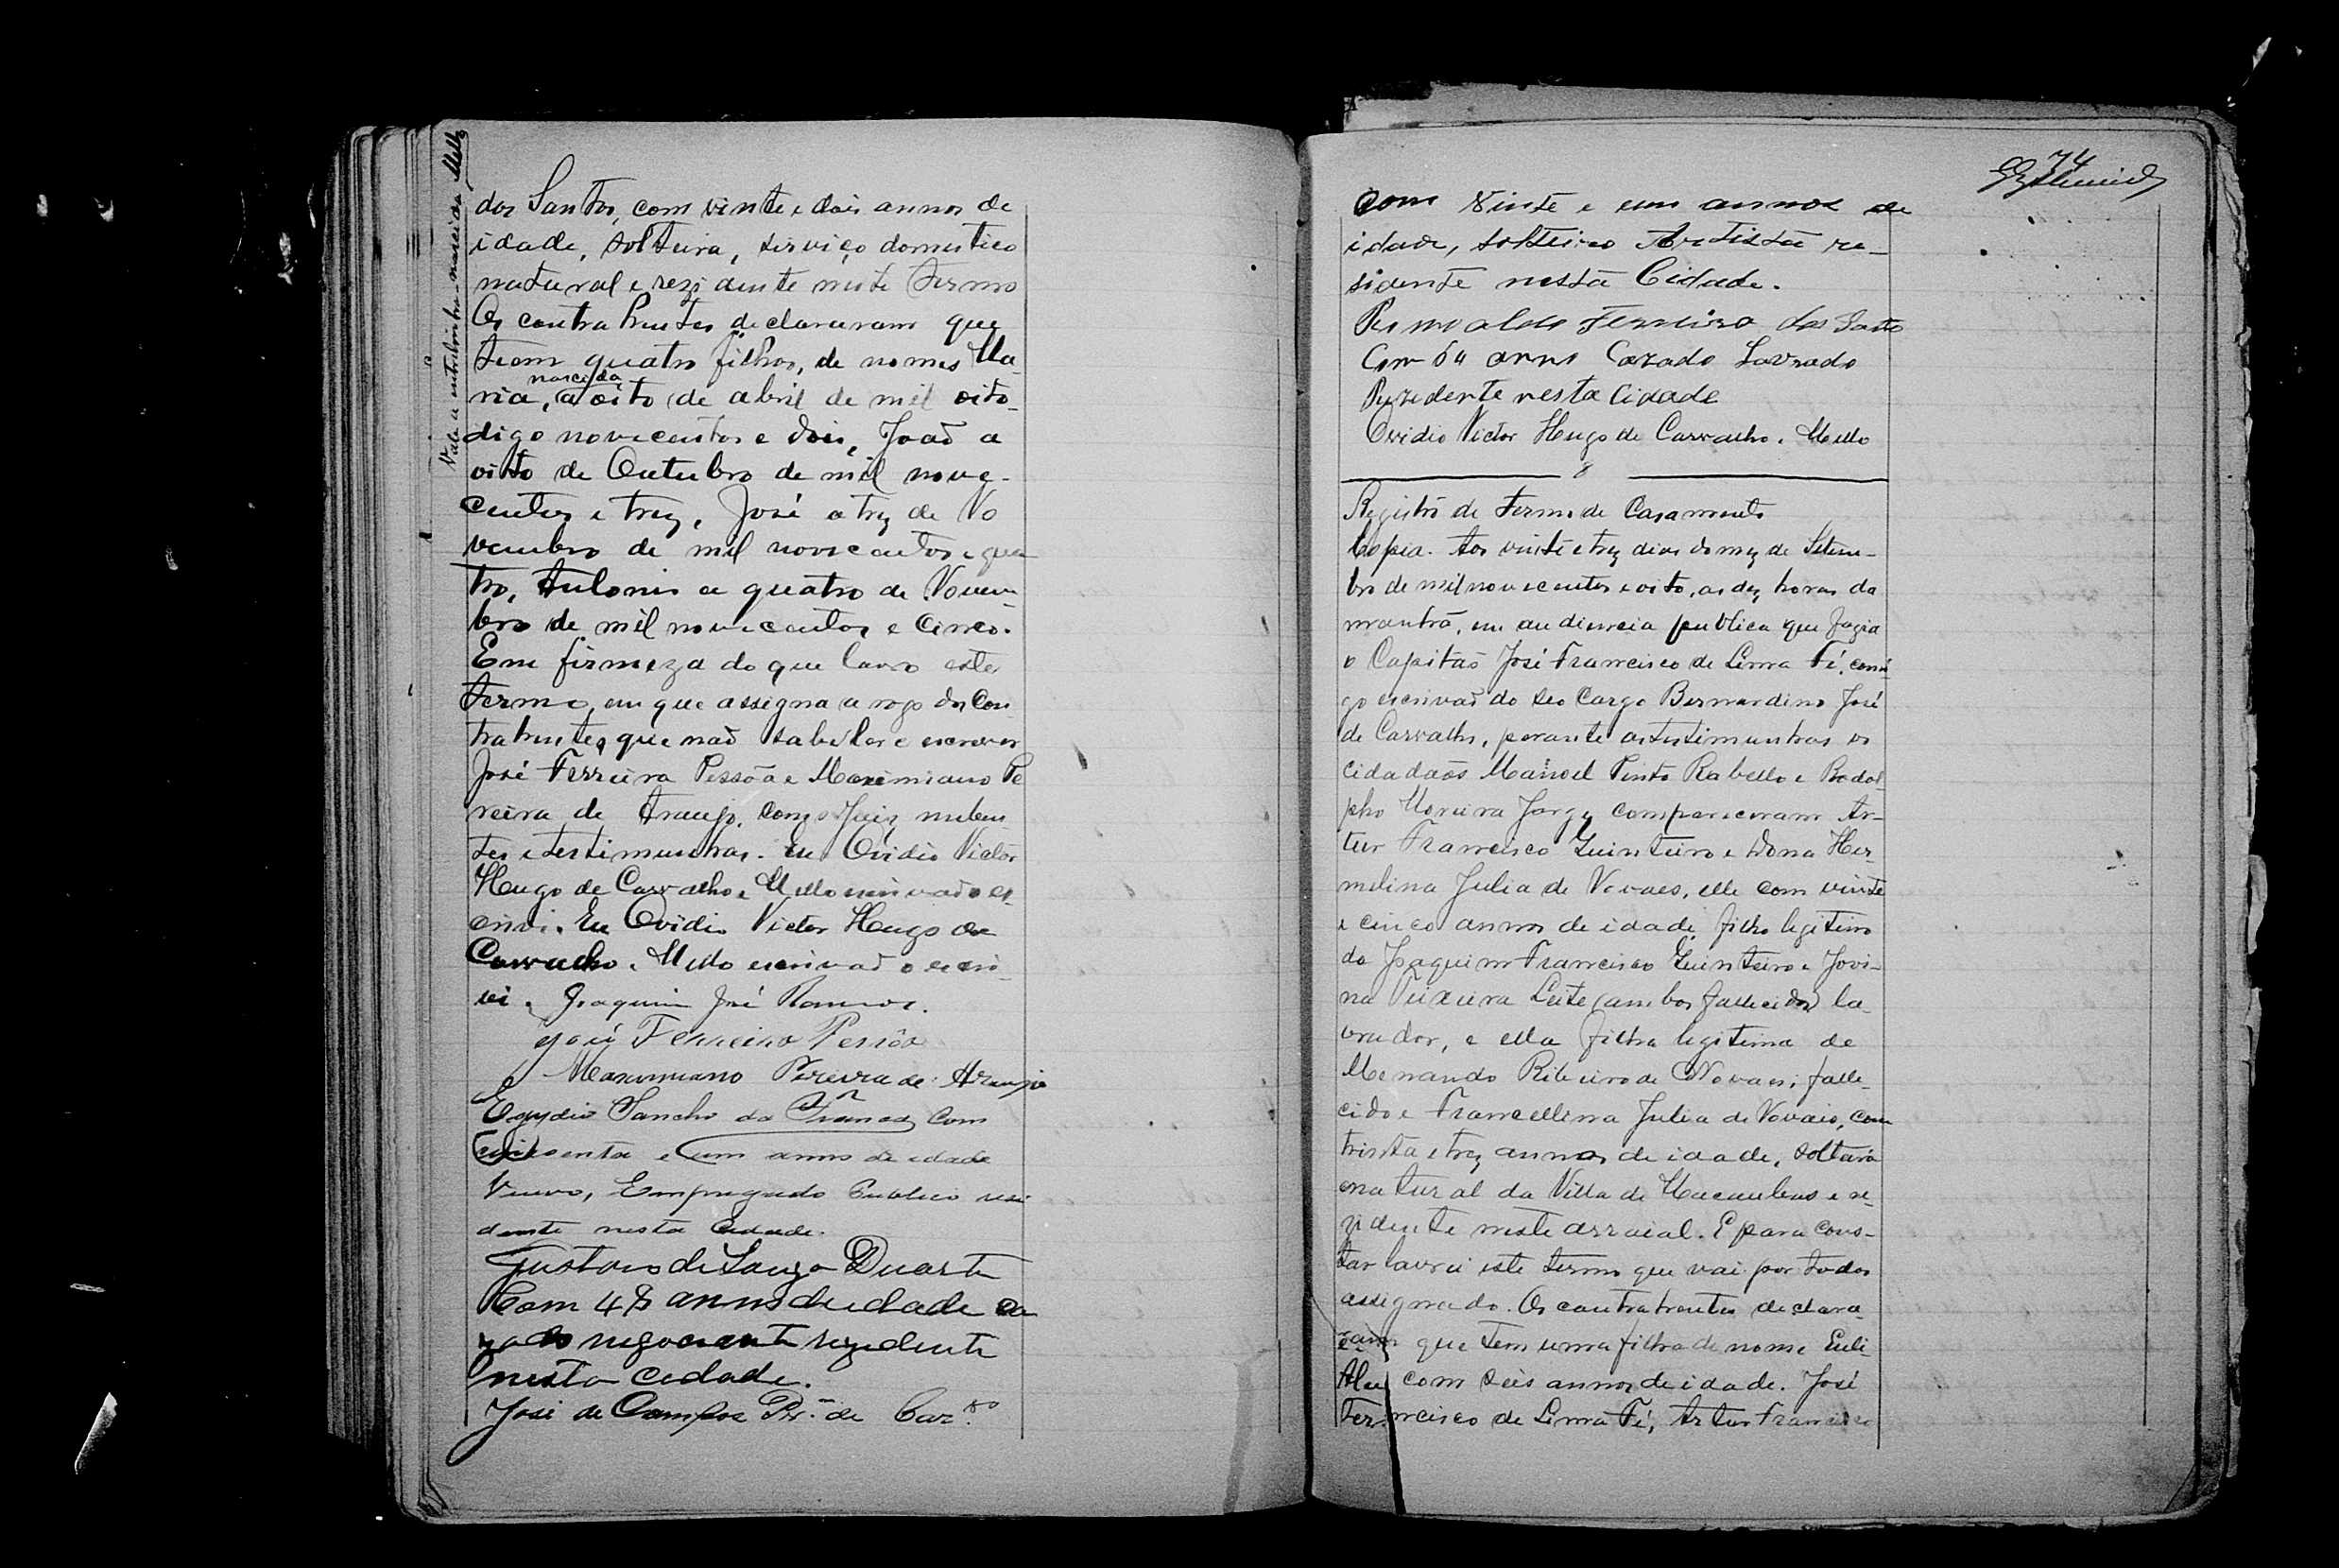 dos Santos, com vinte e dois annos de
idade, solteira, serviço domestico
natural e rezidente neste termo
Os contrahentes declararam que
teem quatro filhos, de nomes Ma
nascida
ria, a oito de abril de mil oito
digo novecentos e dois, João a
oito de Outubro de mil nove-
centos e trez, José a trez de No
vembro de mil novecentos e qua
tro, Antonio a quatro de Novem
bro de mil novecentos e cinco.
Em firmeza do que lavro este
termo, em que assigna a rogo dos Con
trahentes que não saber ler e escrever
José Ferreira Pessôa e Maximiano Pe
reira de Araujo, com o Juiz, nuben
tes e testimunhas. Eu Ovidio Victor
Hugo de Carvalho e Mello escrivão o es
crivi. Eu Ovidio Victor Hugo de
Carvalho e Mello escrivão o escri
vi. Joaquim José Ramos.
José Ferreira Pessôa
Maximiano Pereira de Araujo
Egydio Sancho da França com
e um annos de edade
Viuvo, Empregado Publico resi
dente nesta Cidade.
Gustavo de Souza Duarte
Com 48 annos de edade ca
zado negociante rezidente
nesta Cidade.
José de Campos Pr.ª de Car.vo
Vale a entrelinha - nascida Mello
74
com vinte e um annos de
idade, solteiro Artista re-
sidente nesta Cidade.
Ferreira dos Santo
Com 64 anno Cazado Lavrado
Rezidente nesta Cidade
Ovidio Victor Hugo de Carvalho e Mello
8
Registro de Termo de Casamento
Copia. Aos vinte e trez dias do mez de Setem-
bro de mil novecentos e oito, as dez horas da
manhã, em audiencia publica que fazia
o Capitão José Francisco de Lima Fé, comi
go escrivão do seo Cargo Bernardino José
de Carvalho, perante as testimunhas os
cidadãos Manoel Pinto Rabello e Rodol
pho Moreira Jorge compareceram Ar-
tur Francisco Quinteiro e Dona Her-
melina Julia de Novaes, elle com vinte
e cinco annos de idade, filho legitimo
de Joaquim Francisco Quinteiro e Jovi-
na Teixeira Leite (ambos fallecidos) la
vrador, e ella filha legitima de
Menando Ribeiro de Novaes, falle-
cido e Francellina Julia de Novais, com
trinta e trez annos de idade, solteira
natural da Villa de Macaubas e re-
zidente neste arraial. E para cons-
tar lavrei este termo que vai por todos
assignado. Os contrahentes declara-
ram que tem uma filha de nome
com seis annos de idade. José
Francisco de Lima Fé, Artur Francisco